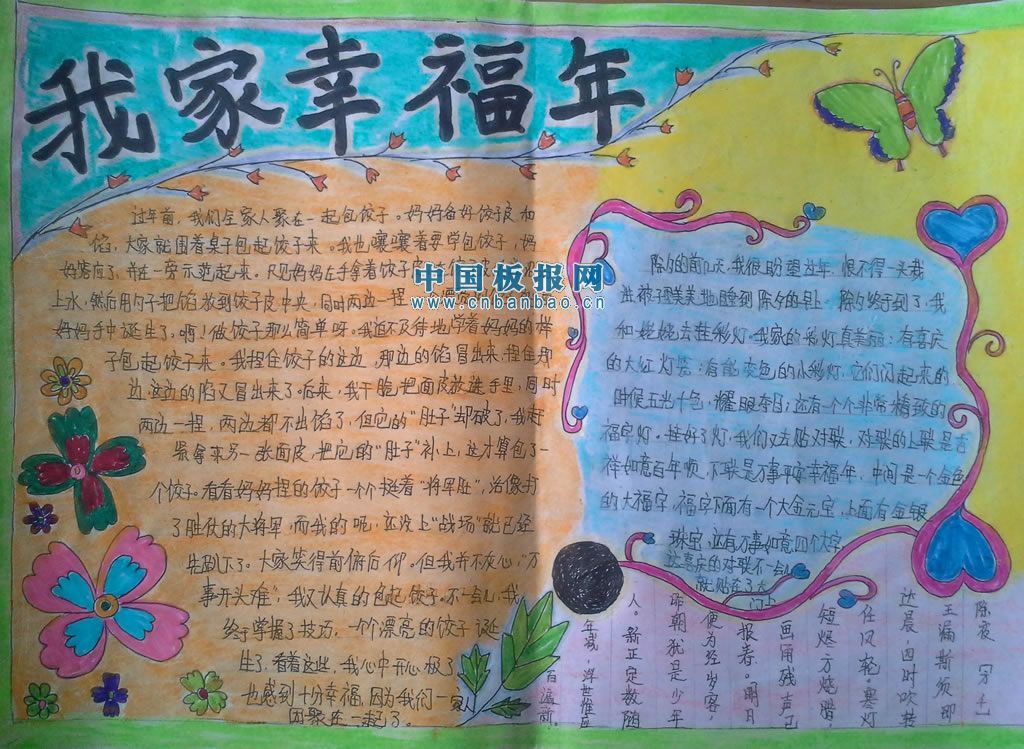 我家幸福年
过年前,我们全家人聚在一起包饺子。妈妈备好饺子皮和
馅,大家就围着桌子包起饺子来。我也嚷嚷着要学包饺子,妈
妈答应了,并在一旁示范起来。只见妈妈左手拿着饺子皮
上水,然后用勺子把馅放到饺子皮中央,同时两边一捏
妈妈手中诞生了。啊!做饺子那么简单呀。我迫不及待地学着妈妈的样
子包起饺子来。我捏住饺子的这边,那边的馅冒出来,捏住那
边,这边的馅又冒出来了。后来,我干脆把面皮放进手里,同时
两边一捏,两边都不出馅了,但它的“肚子”却破了,我赶
紧拿来另一张面皮,把它的“肚子”补上,这才算包了一
个饺子。看看妈妈捏的饺子一个个挺着“将军肚”,活像打
了胜仗的大将军,而我的呢,还没上“战场”就已经
先倒下了。大家笑得前俯后仰。但我并不灰心,“万
事开头难”,我又认真的包起饺子。不一会儿,我
终于掌握了技巧,一个漂亮的饺子诞
生了。看着这些,我心中开心极了
也感到十分幸福,因为我们一家人
团聚在一起了。
除夕的前几天,我很盼望过年,恨不得一头栽
进被子里美美地睡到除夕的早上。除夕终于到了,我
和姥姥去挂彩灯。我家的彩灯真美丽:有喜庆
的大红灯笼;有能变色的小彩灯,它们闪起来的
时候五光十色,耀眼夺目;还有一个个非常精致的
福字灯。挂好了灯,我们又去贴对联,对联的上联是吉
祥如意百年顺,下联是万事平安幸福年,中间是一个金色
的大福字,福字下面有一个大金元宝,上面有金银
珠宝,还有万事如意四个大字
这喜庆的对联不一会儿
就贴在了大
门上
除夜
玉漏斯须即
达晨,四时吹转
任风轮。寒灯
短烬方烧腊,
画角残声已
报春。明日
便为经岁客,
昨朝犹是少年
人。新正定数随
年减,浮世惟应
百遍新。
中国板报网
www.cnbanbao.cn